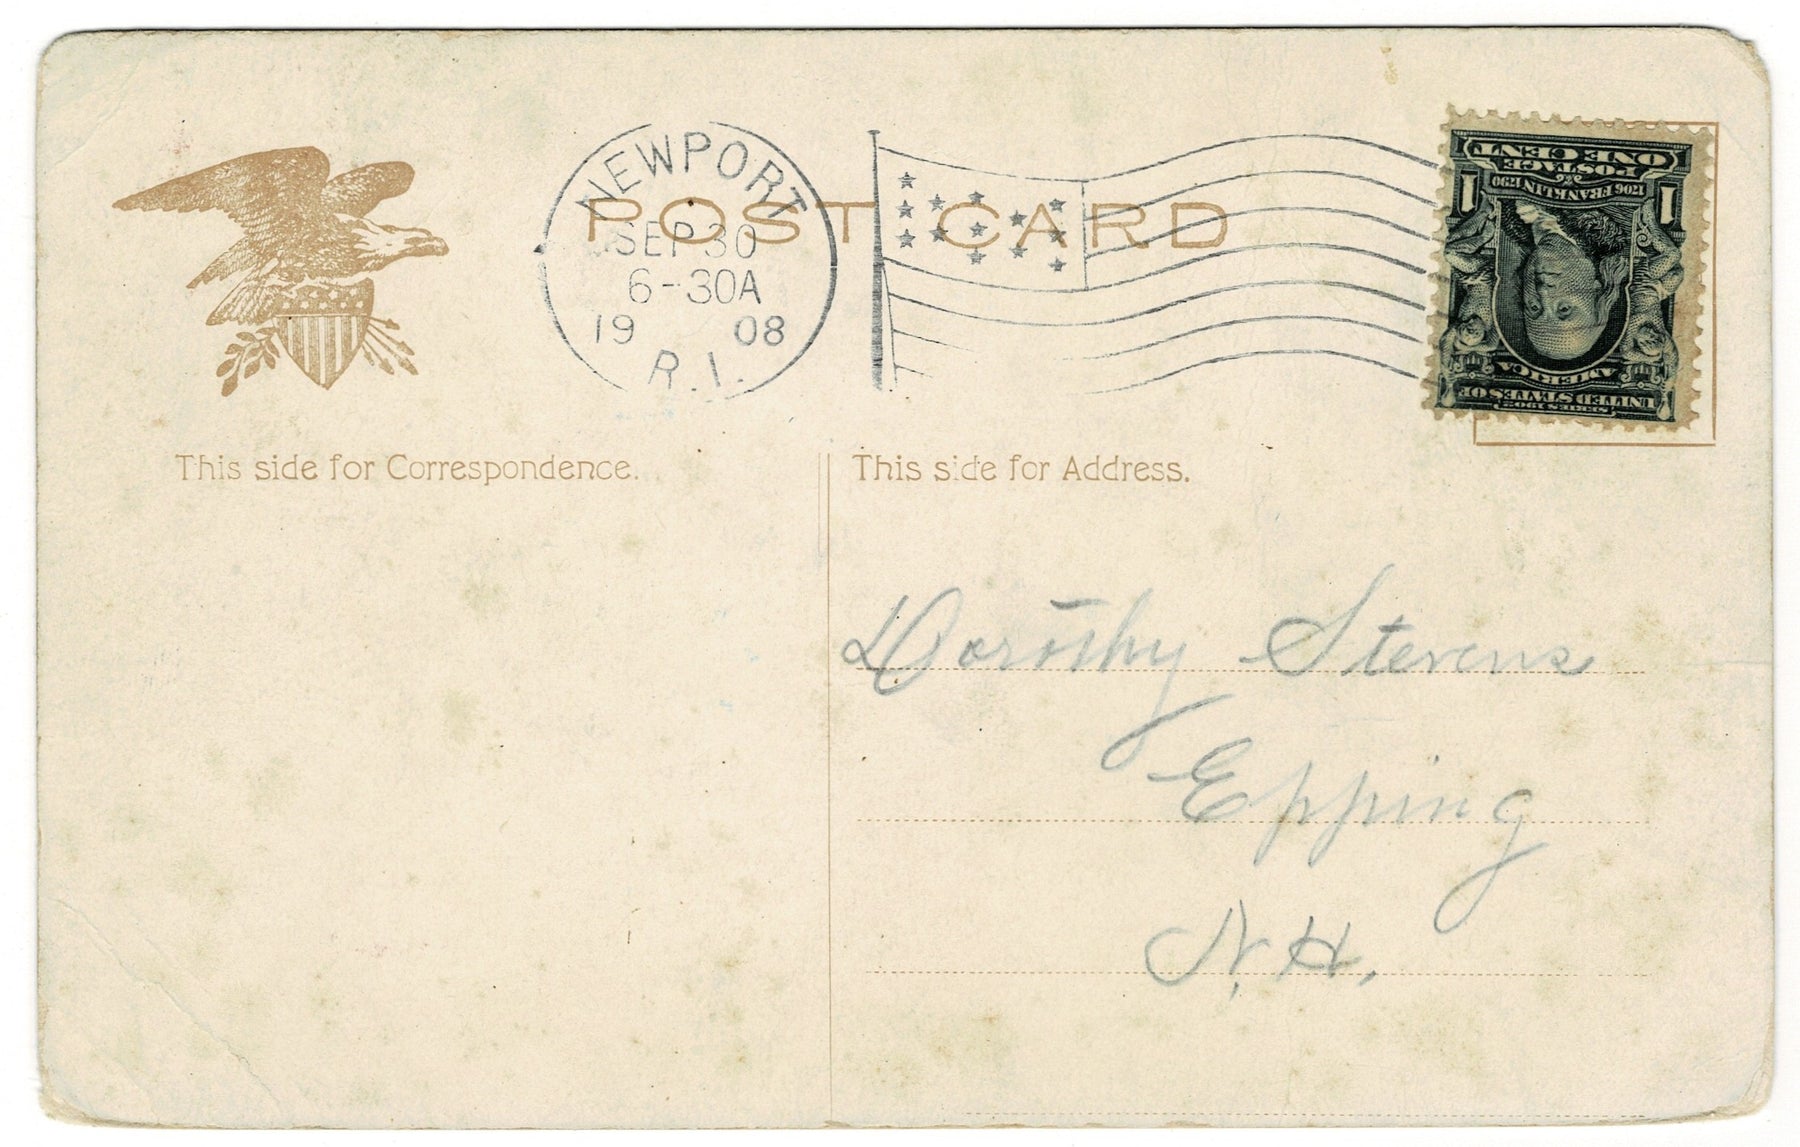 NEWPORT
SEP 30
6-30A
19 08
R.I.
POST CARD
This side for Correspondence.
This side for Address.
ONE CENT
POSTAGE
1 1
1706 FRANKLIN 1790
AMERICA
UNITED STATES OF
SERIES 1902
Dorothy Stevens
Epping
N.H.